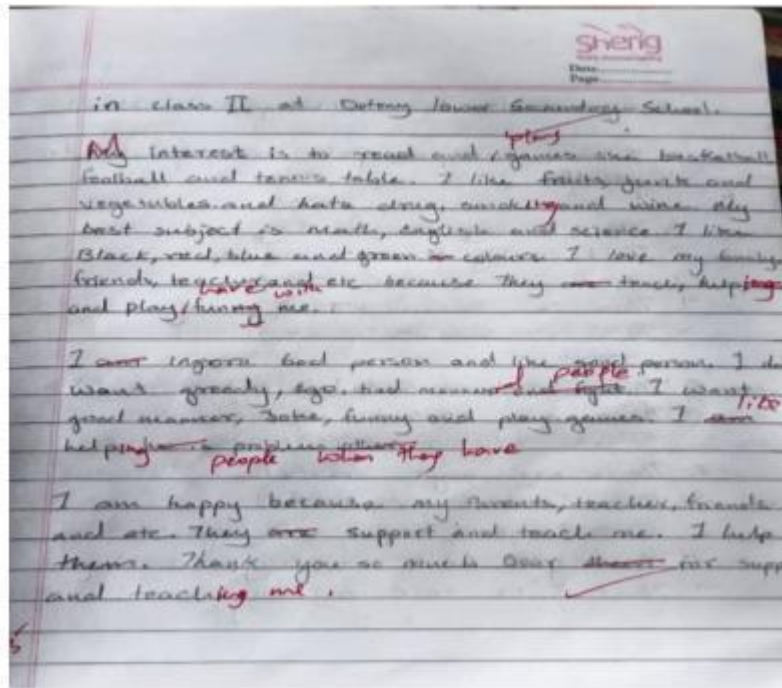 sherig
Date
Page
in class II at Doteng lower Secondary School.
play
My interest is to read and games like basketball
football and tennis table. I like fruits, junk and
vegetables and hate drug, smoking and wine. My
best subject is math, english and science. I like
Black, red, blue and green colours. I love my family
friends, teacher and etc because they are teach, helping
have with
and play/funny me.
I am ingora bad person and like good person. I d
people
want greedy, ego, bad manner and fight. I want
like
good manner, Joke, funny and play games. I am
helping in problem
people when they have
I am happy because my parents, teacher, friends
and etc. They are support and teach me. I help
them. Thank you so much Dear them for supp
and teaching me.